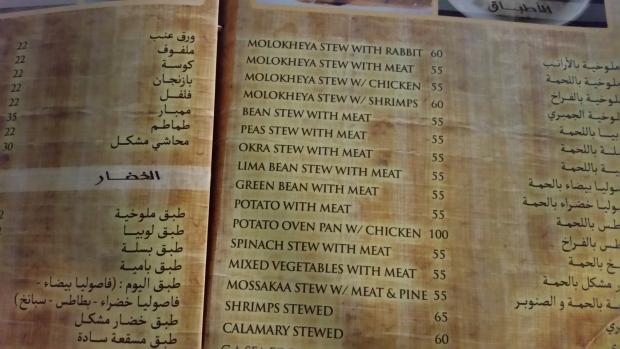 ورق عنب
ملفوف 22
كوسة 22
بازنجان 22
فلفل 22
ممبار 35
طماطم 22
محاشي مشكل 30
الخضار
طبق ملوخية
طبق لوبيا
طبق بسلة
طبق بامية
طبق اليوم : (فاصوليا بيضاء -
فاصوليا خضراء - بطاطس - سبانخ)
طبق خضار مشكل
طبق مسقعة سادة
الأطباق
MOLOKHEYA STEW WITH RABBIT 60
MOLOKHEYA STEW WITH MEAT 55
MOLOKHEYA STEW W/ CHICKEN 55
MOLOKHEYA STEW W/ SHRIMPS 60
BEAN STEW WITH MEAT 55
PEAS STEW WITH MEAT 55
OKRA STEW WITH MEAT 55
LIMA BEAN STEW WITH MEAT 55
GREEN BEAN WITH MEAT 55
POTATO WITH MEAT 55
POTATO OVEN PAN W/ CHICKEN 100
SPINACH STEW WITH MEAT 55
MIXED VEGETABLES WITH MEAT 55
MOSSAKAA STEW W/ MEAT & PINE 55
SHRIMPS STEWED 65
CALAMARY STEWED 60
ملوخية بالأرانب
ملوخية باللحمة
ملوخية بالفراخ
ملوخية الجمبري
باللحمة
باللحمة
باللحمة
بيضاء بالحمة
خضراء بالحمة
باللحمة
بالفراخ
بالحمة
مشكل بالحمة
بالحمة و الصنوبر